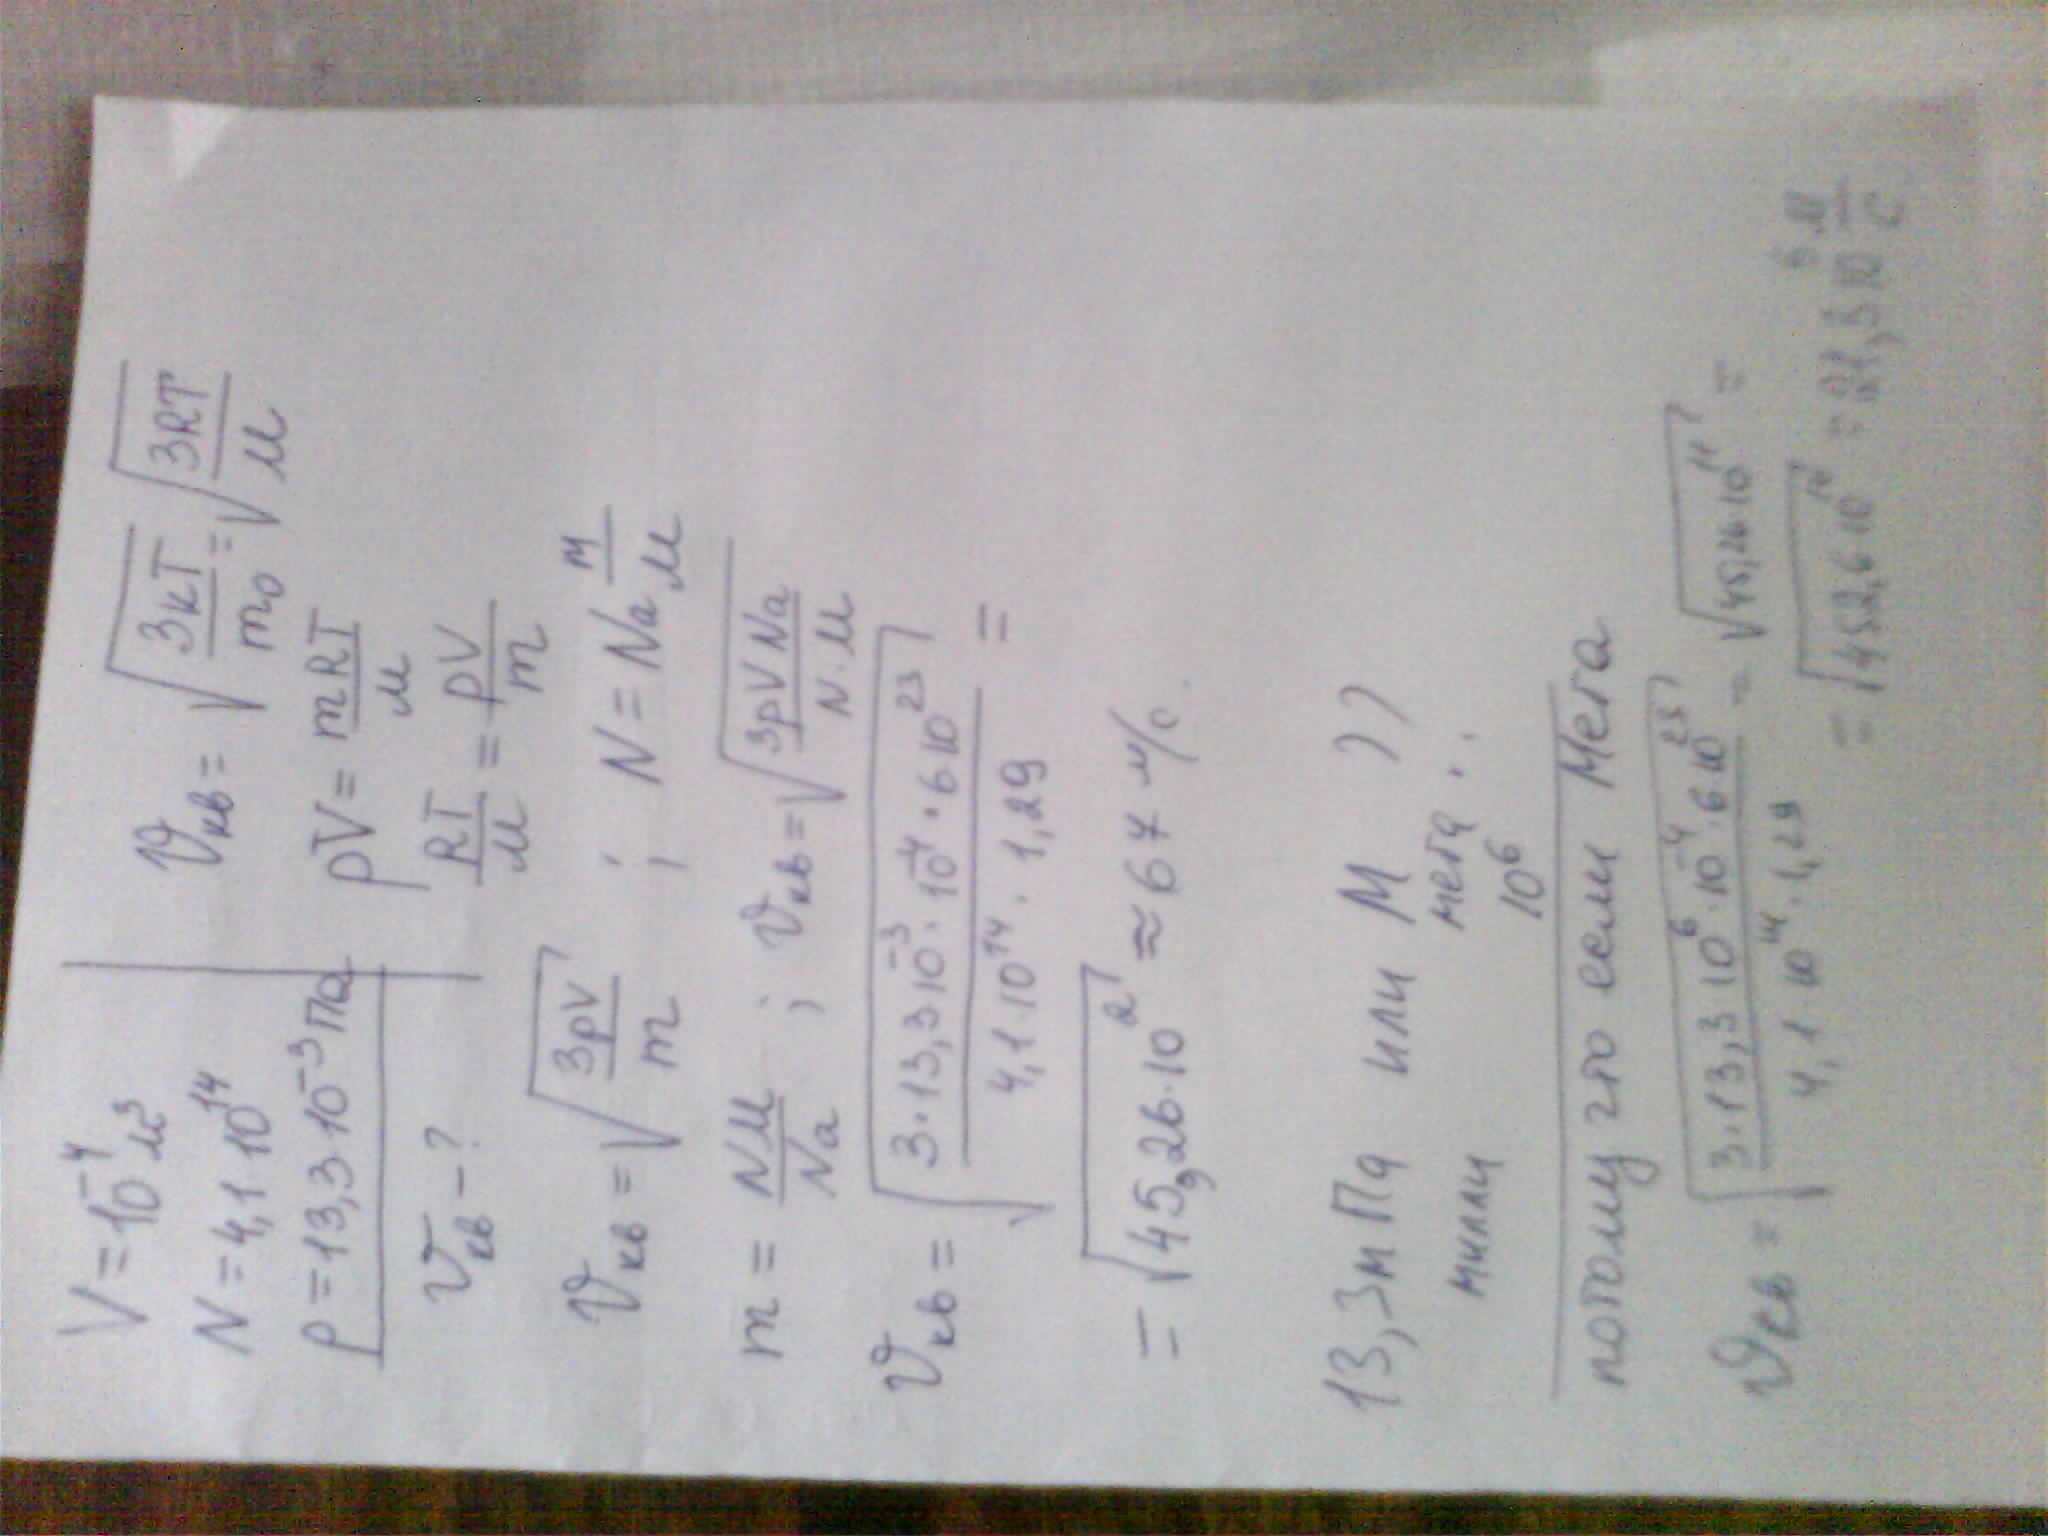 V = 10⁻⁴ м³
N = 4,1 10¹⁴
p = 13,3 · 10⁻³ Па
υкв – ?
υкв = √(3kT/m₀) = √(3RT/μ)
pV = mRT/μ
RT/μ = pV/m
υкв = √(3pV/m) ; N = Na m/μ
m = Nμ/Na ; υкв = √(3pVNa/N·μ)
υкв = √(3·13,3 10⁻³ · 10⁻⁴ · 6 10²³/4,1 10¹⁴ · 1,29) =
= √(45,26·10²) ≈ 67 м/с.
13,3 мПа или М ??
милли мега
10⁶
потому что если Мега
υкв = √(3·13,3 10⁶ · 10⁻⁴ · 6 10²³/4,1 10¹⁴ · 1,29) = √(45,26·10¹¹) =
= √(452,6 10¹⁰) = 21,3 10⁵ м/с